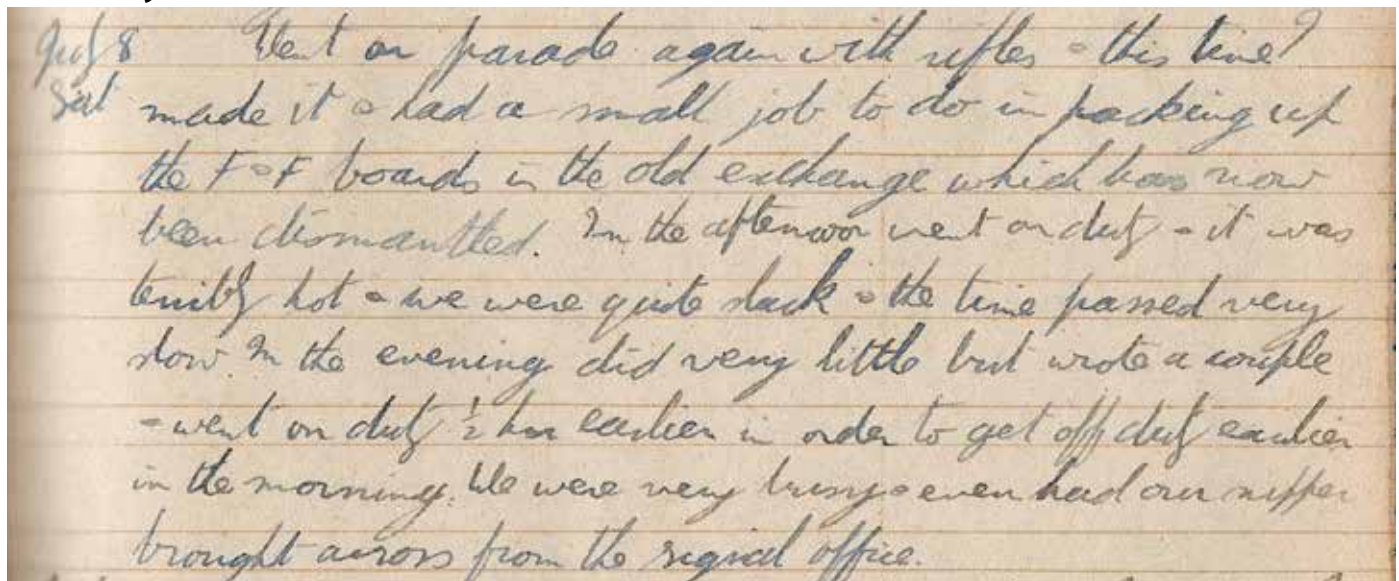 July 8 Went on parade again with rifles - this time I
Sat made it - had a small job to do in packing up
the F & F boards in the old exchange which has now
been dismantled. In the afternoon went on duty - it was
terribly hot - we were quite slack & the time passed very
slow. In the evening did very little but wrote a couple
- went on duty ½ hour earlier in order to get off duty earlier
in the morning. We were very busy & even had our supper
brought across from the signal office.